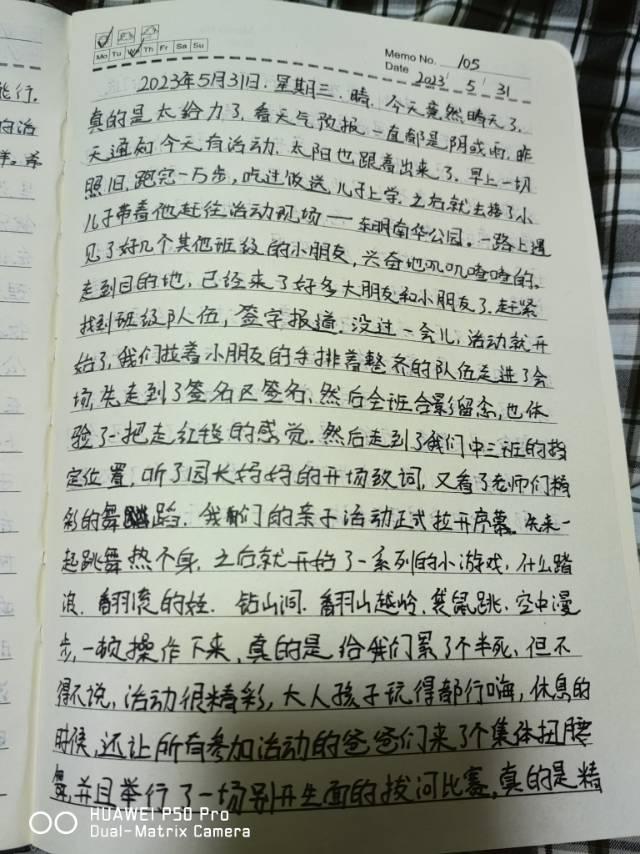 飞行.
的治
样。希
Mo Tu We Th Fr Sa Su
Memo No. 105
Date 2023 5 31
2023年5月31日. 星期三. 晴. 今天竟然晴天了,
真的是太给力了, 看天气预报一直都是阴或雨, 昨
天通知今天有活动. 太阳也跟着出来了. 早上一切
照旧, 跑完一万步, 吃过饭送儿子上学. 之后就去接了小
儿子带着他赶往活动现场——东明南华公园。一路上遇
见了好几个其他班级的小朋友, 兴奋地叽叽喳喳的。
走到目的地, 已经来了好多大朋友和小朋友了. 赶紧
找到班级队伍, 签字报道. 没过一会儿, 活动就开
始了, 我们拉着小朋友的手排着整齐的队伍走进了会
场, 先走到了签名区签名, 然后全班合影留念, 也体
验了一把走红毯的感觉. 然后走到了我们中三班的指
定位置, 听了园长妈妈的开场致词, 又看了老师们精
彩的舞蹈. 我们的亲子活动正式拉开序幕。先来一
起跳舞热个身, 之后就开始了一系列的小游戏, 什么踏
浪. 翻滚的娃. 钻山洞. 翻山越岭, 袋鼠跳, 空中漫
步, 一顿操作下来, 真的是给我们累了个半死, 但不
得不说, 活动很精彩, 大人孩子玩得都行嗨, 休息的
时候, 还让所有参加活动的爸爸们来了个集体扭腰
舞, 并且举行了一场别开生面的拔河比赛, 真的是精
HUAWEI P50 Pro
Dual-Matrix Camera